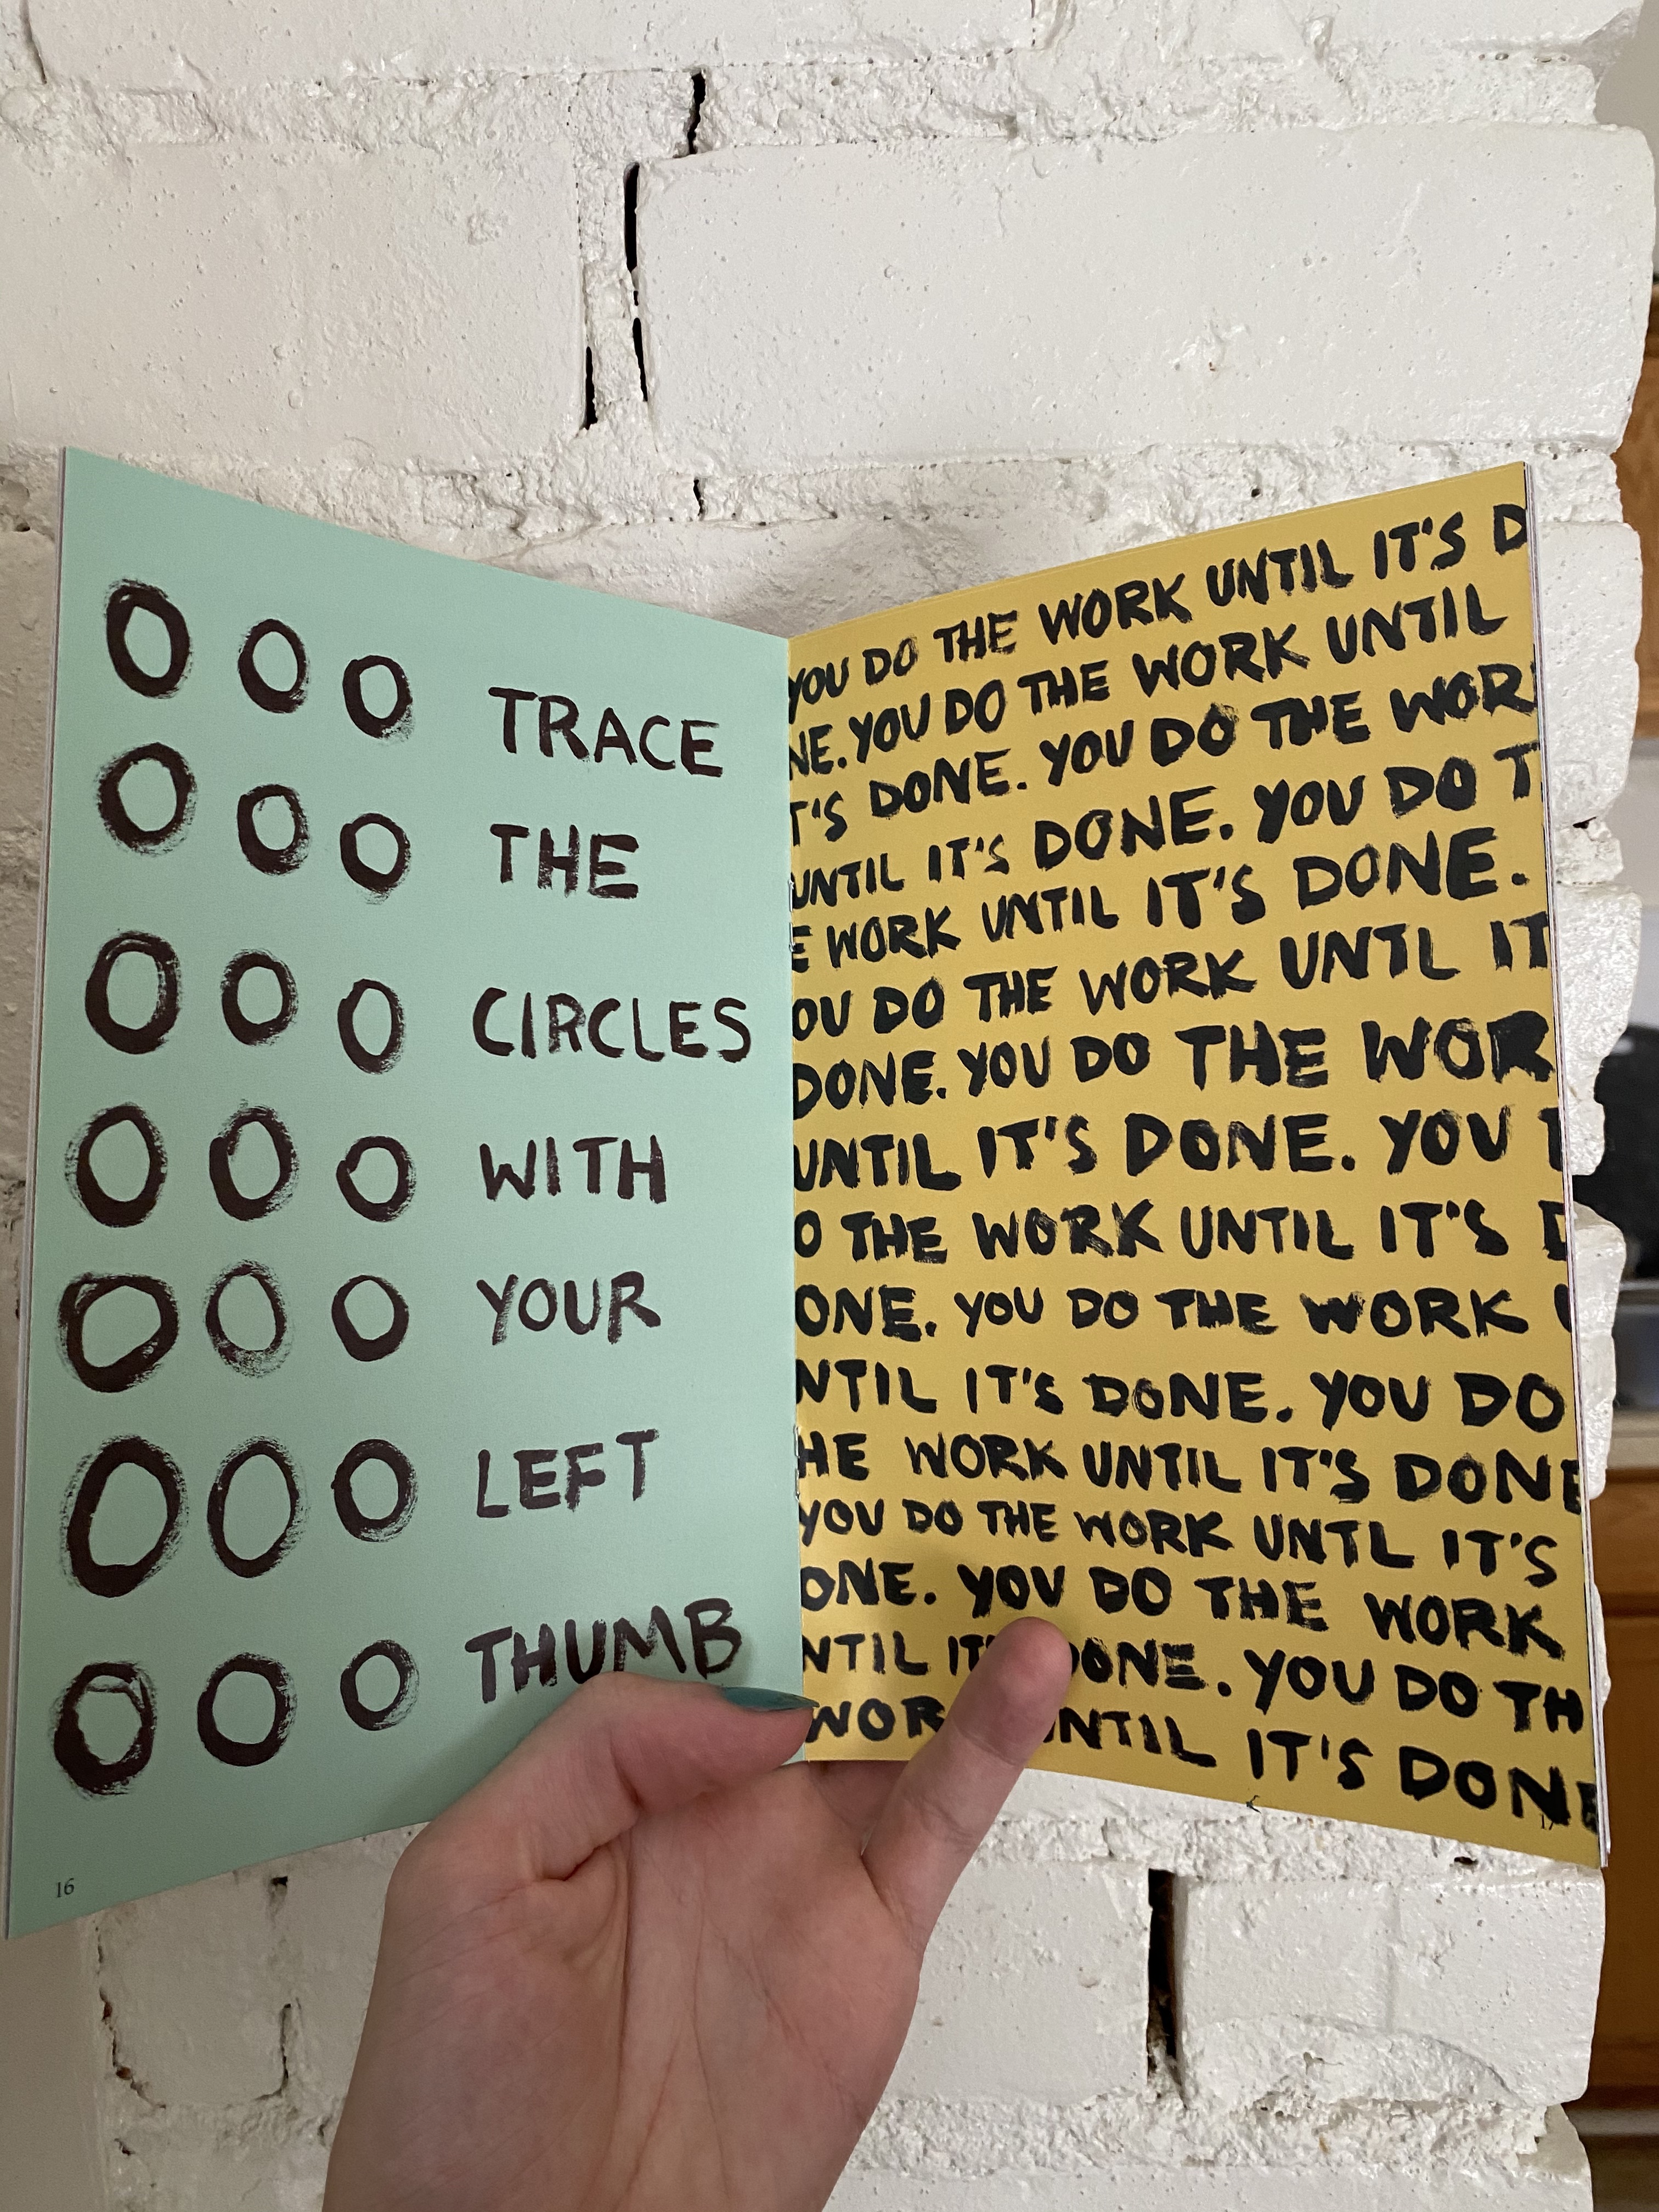 TRACE
THE
CIRCLES
WITH
YOUR
LEFT
THUMB
16
YOU DO THE WORK UNTIL IT'S D
NE. YOU DO THE WORK UNTIL
T'S DONE. YOU DO THE WOR
UNTIL IT'S DONE. YOU DO T
E WORK UNTIL IT'S DONE.
OU DO THE WORK UNTL IT
DONE. YOU DO THE WOR
UNTIL IT'S DONE. YOU
O THE WORK UNTIL IT'S D
ONE. YOU DO THE WORK
NTIL IT'S DONE. YOU DO
HE WORK UNTIL IT'S DONE
YOU DO THE WORK UNTL IT'S
ONE. YOU DO THE WORK
NTIL IT' DONE. YOU DO TH
WOR NTIL IT'S DONE
17